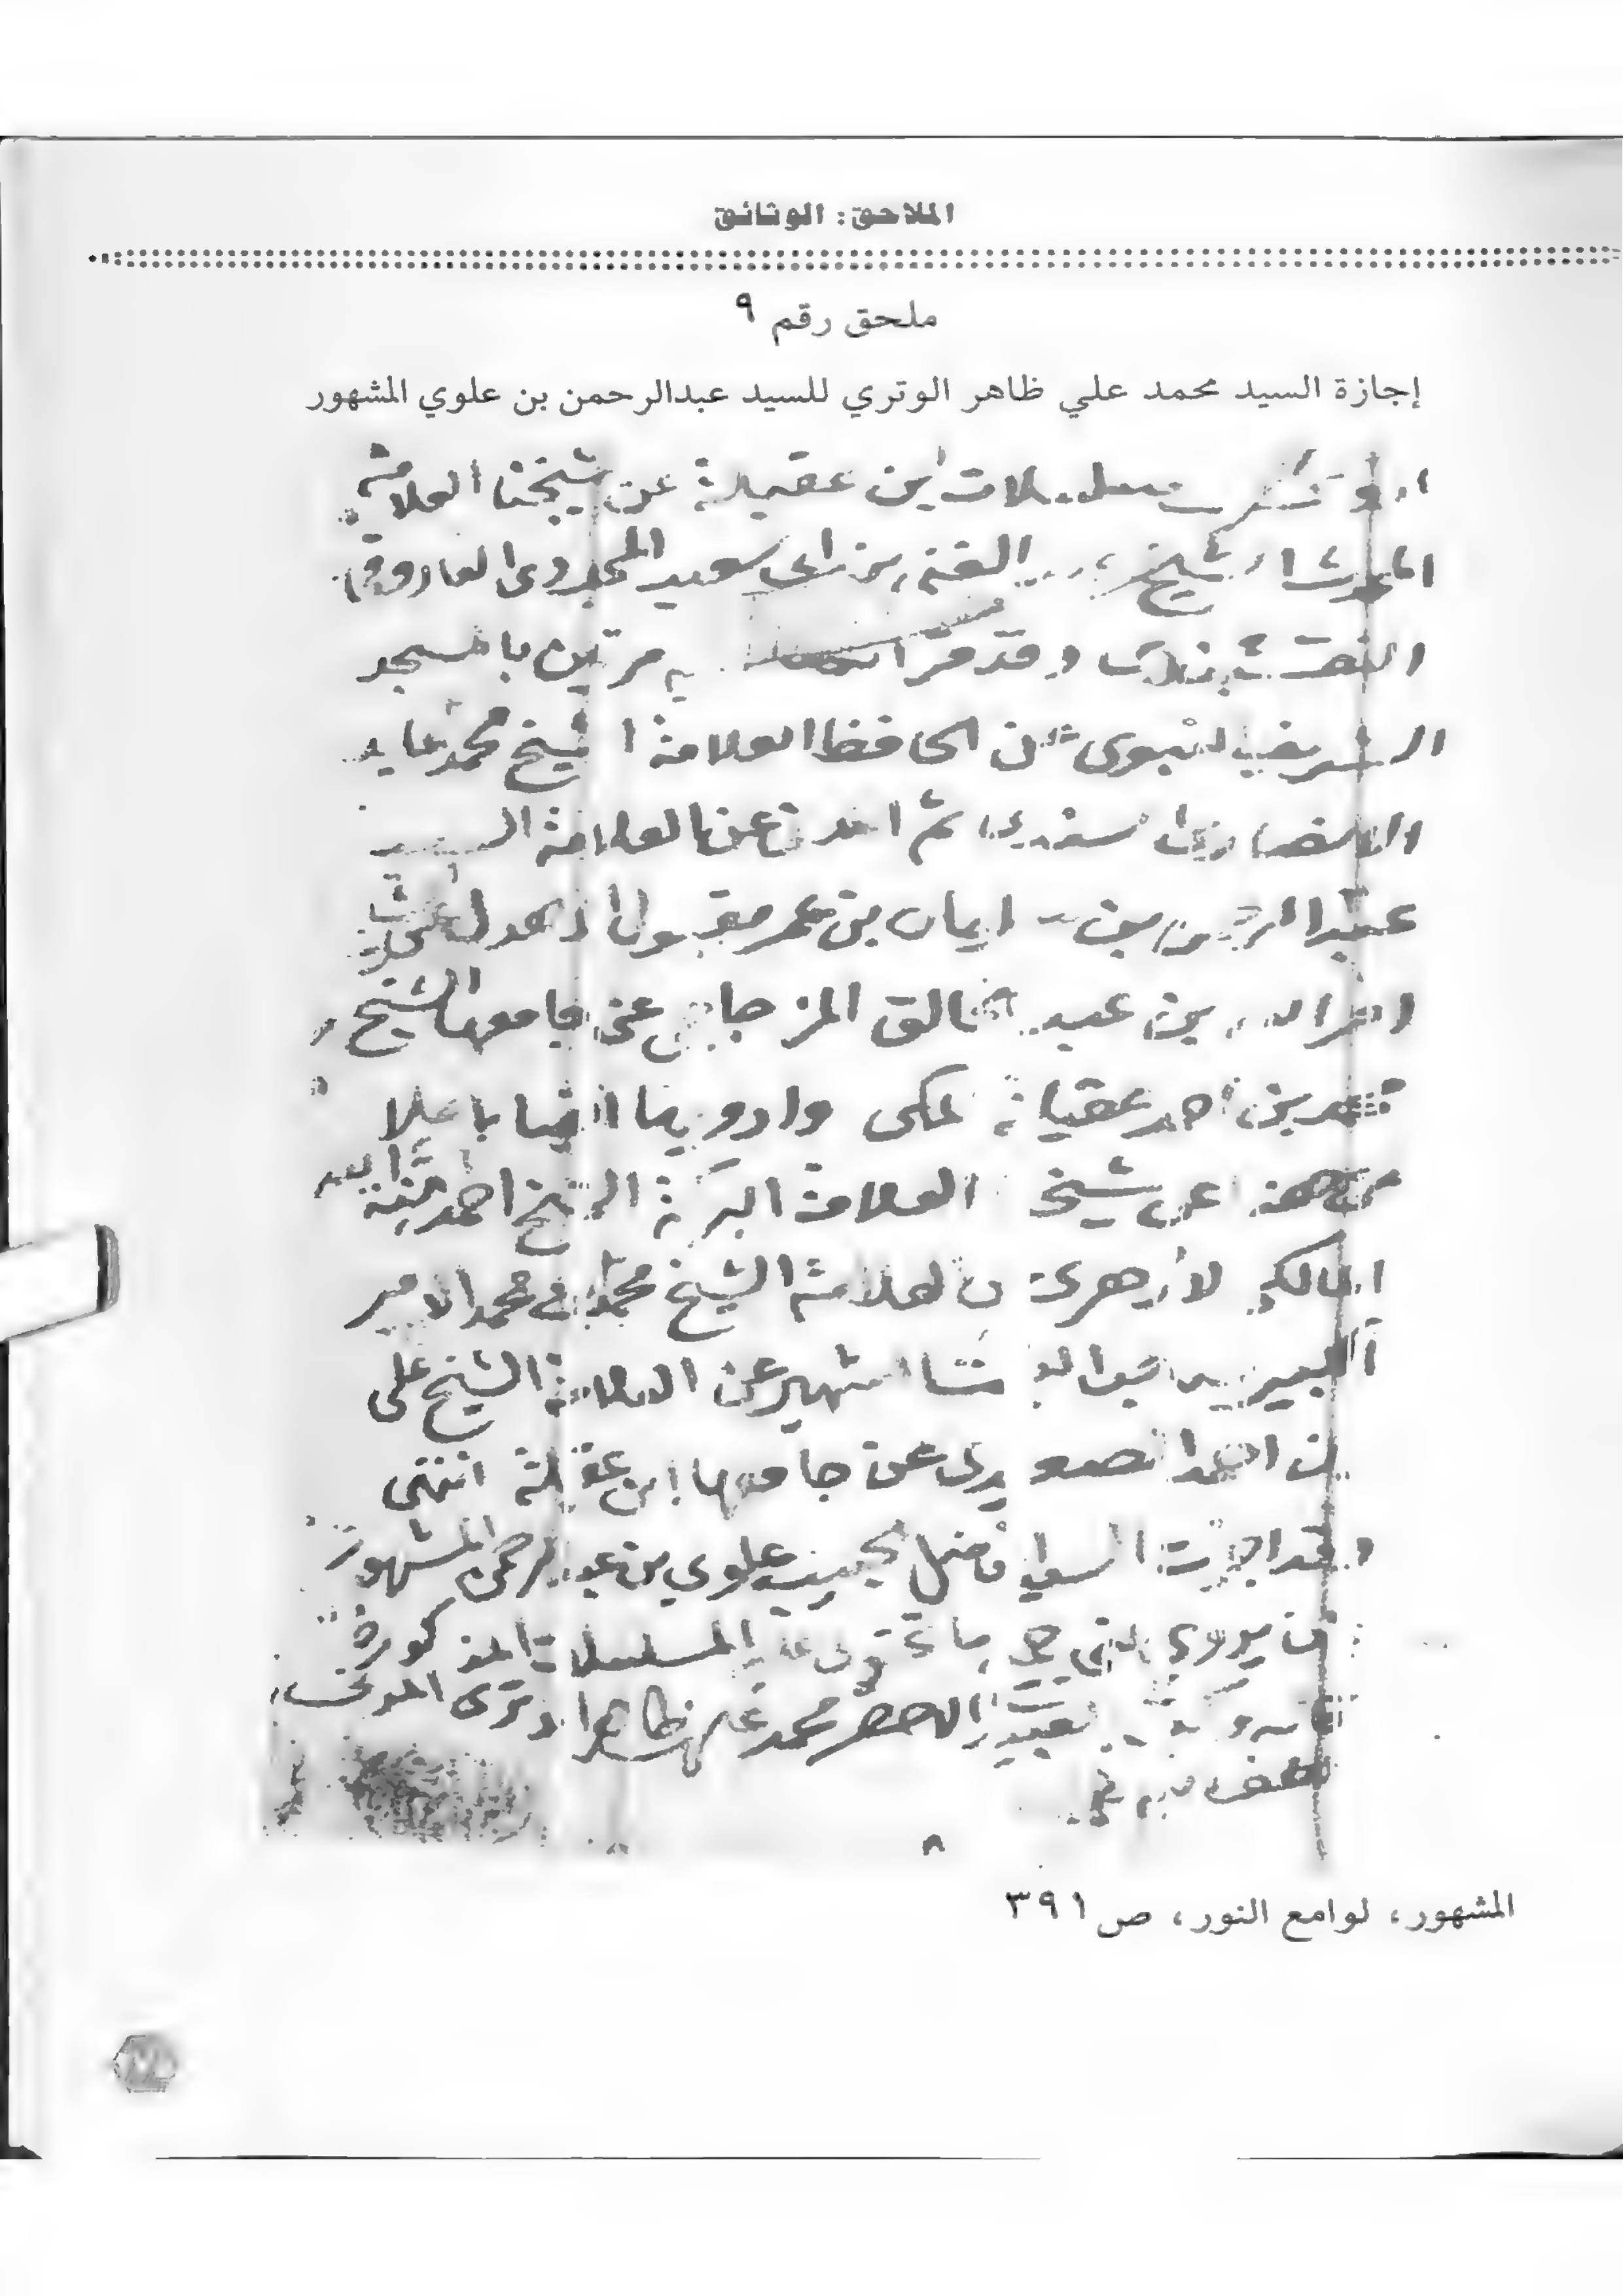 الملاحق: الوثائق
ملحق رقم ٩
إجازة السيد محمد علي ظاهر الوتري للسيد عبدالرحمن بن علوي المشهور
مسلسلات ابن عقيلة عن شيخنا العلامة
الشيخ الغني بن ابي سعيد المجددي الفاروقي
النقشبندي وقد قرأ مرتين بالمسجد
الشريف النبوي عن الحافظ العلامة الشيخ محمد عابد
الانصاري السندي ثم المدني عن العلامة السيد
عبد الرحمن بن سليمان بن عمر مقبول الاهدل عن
امر الله بن عبد الخالق المزجاجي عن جامعها الشيخ
محمد بن احمد عقيلة المكي وارويها ايضا باعلا
من هذه عن شيخي العلامة البركة الشيخ احمد منة الله
المالكي الازهري عن العلامة الشيخ محمد بن محمد الامير
الكبير الشهير عن العلامة الشيخ علي
بن احمد الصعيدي عن جامعها ابن عقيلة انتهى
وقد اجزت الفاضل الحبيب علوي بن عبد الرحمن المشهور
ان يروي عني المسلسلات المذكورة
الفقير الاحقر محمد علي ظاهر الوتري المدني
٨
المشهور، لوامع النور، ص ٣٩١